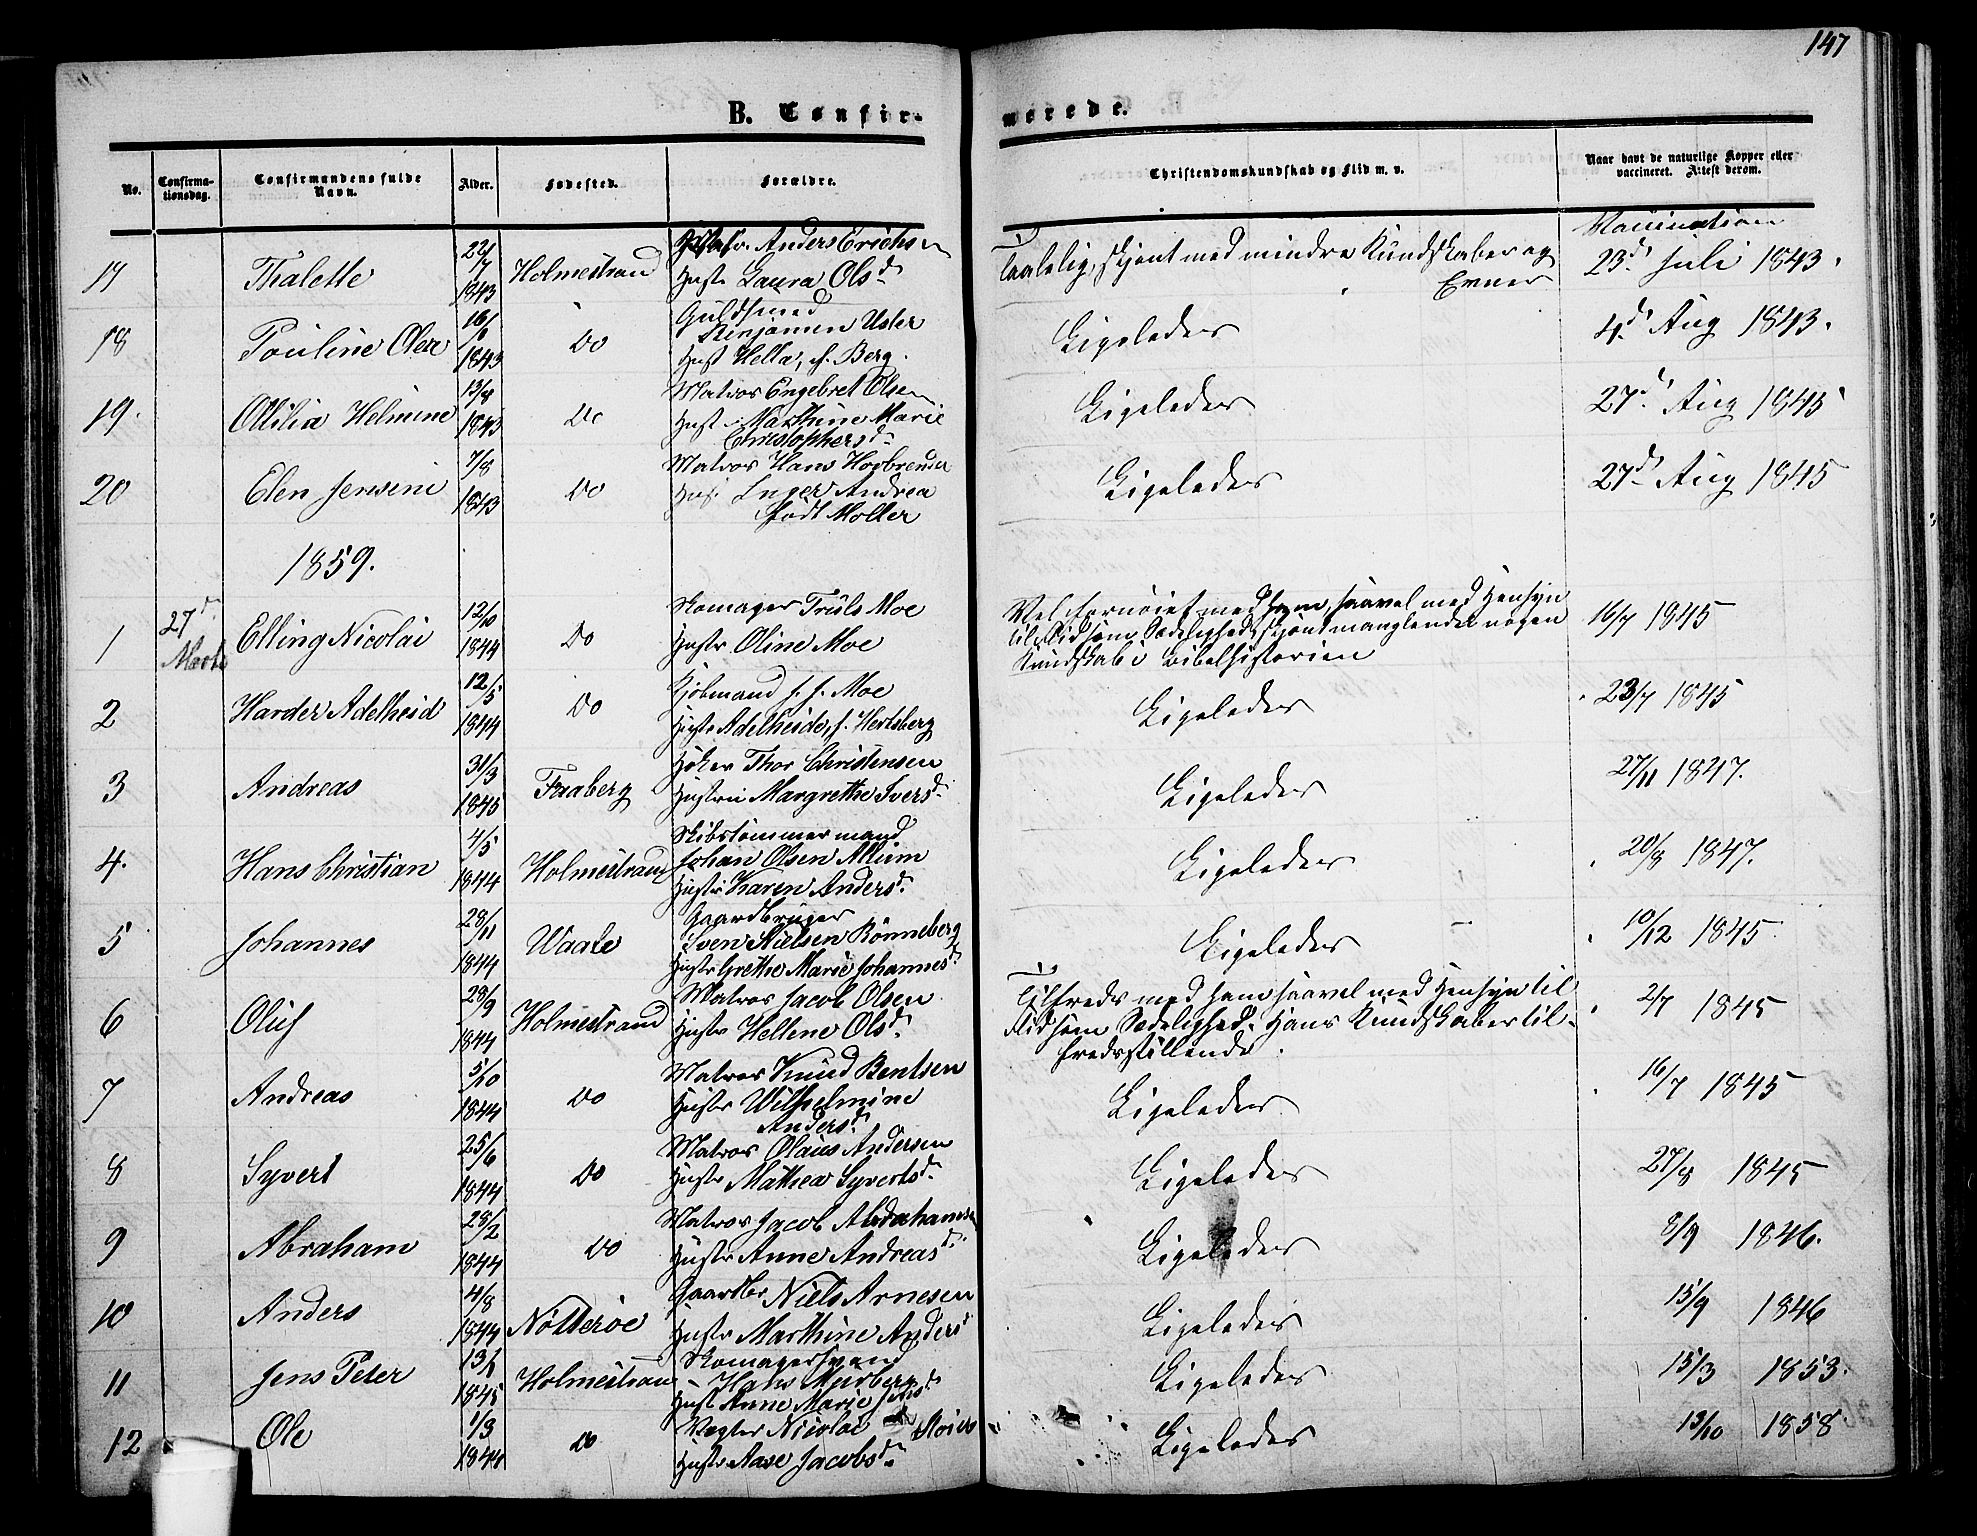 147
B. Confir- merede.
No. Confirma-tionsdag. Confirmandens fulde Navn. Alder. Fødested. Forældre. Christendomskundskab og Flid m. v. Naar havt de naturlige Kopper eller vaccineret. Attest derom.
Vaccination
17 Thalette 22/7 1843 Holmestrand Anders Erichsen Hustr Laura Olsd. Taalelig, skjønt med mindre Kundskaber og Evner 23d. Juli 1843.
18 Pouline Olea 1843 Do Guldsmed Benjamin Uster Hust Hella, f. Berg. Ligeledes 4d. Aug 1843.
19. Ottilia Helmine 13/8 1843 Do Matros Engebret Olsen Hust Marthine Marie Christophersd. Ligeledes 27d. Aug 1845
20 Elen Jensine 7/8 1843 Do Matros Hans Hust Inger Andrea født Møller Ligeledes 27d. Aug 1845
1859.
1 27d. Marts Elling Nicolai 12/10 1844 Do Skomager Truls Moe Hustr Oline Moe Vel fornøiet med ham, saavel med Hensyn til Flid som Sædelighed, skjønt manglende nogen Kundskab i Bibelhistorien 16/7 1845
2 Harder Adelheid 12/5 1844 Do Kjøbmand J. J. Moe Hustr Adelheide, f. Hertsberg Ligeledes 23/7 1845
3 Andreas 31/3 1845 Faaberg Høker Thor Christensen Hustru Margrethe Iversd. Ligeledes 27/11 1847.
4. Hans Christian 4/5 1844 Holmestrand Skibstømmermand Johan Olsen Allum Hustr Karen Andersd. Ligeledes 20/8 1847.
5 Johannes 28/11 1844 Waale Gaardbruger Sven Nielsen Rønneberg Hustr Grethe Marie Johannesd. Ligeledes 10/12 1845
6 Oluf 28/9 1844 Holmestrand Matros Jacob Olsen Hustr Hellene Olsd. Tilfreds med ham saavel med Hensyn til Flid som Sædelighed. Hans Kundskaber til-fredsstillende. 2/7 1845
7 Andreas 5/10 1844 Do Matros Knud Bentsen Hustr Wilhelmine Andersd. Ligeledes 16/7 1845
8 Syvert 25/6 1844 Do Matros Olaus Andersen Hustr Mathea Syvertsd. Ligeledes 27/8 1845
9 Abraham 28/2 1844 Do Matros Jacob Abrahamsen Hustr Anne Andreasd. Ligeledes 8/9 1846.
10 Anders 4/8 1844 Nøtterøe Gaardbr Niels Arnesen Hustr Marthine Andersd Ligeledes 15/9 1846
11 Jens Peter 13/1 1845 Holmestrand Skomagersvend Hans Hust Anne Marie Ligeledes 15/3 1853.
12 Ole 1/3 1844 Do Vægter Nicolai Hustr Aase Jacobsd. Ligeledes 13/10 1858